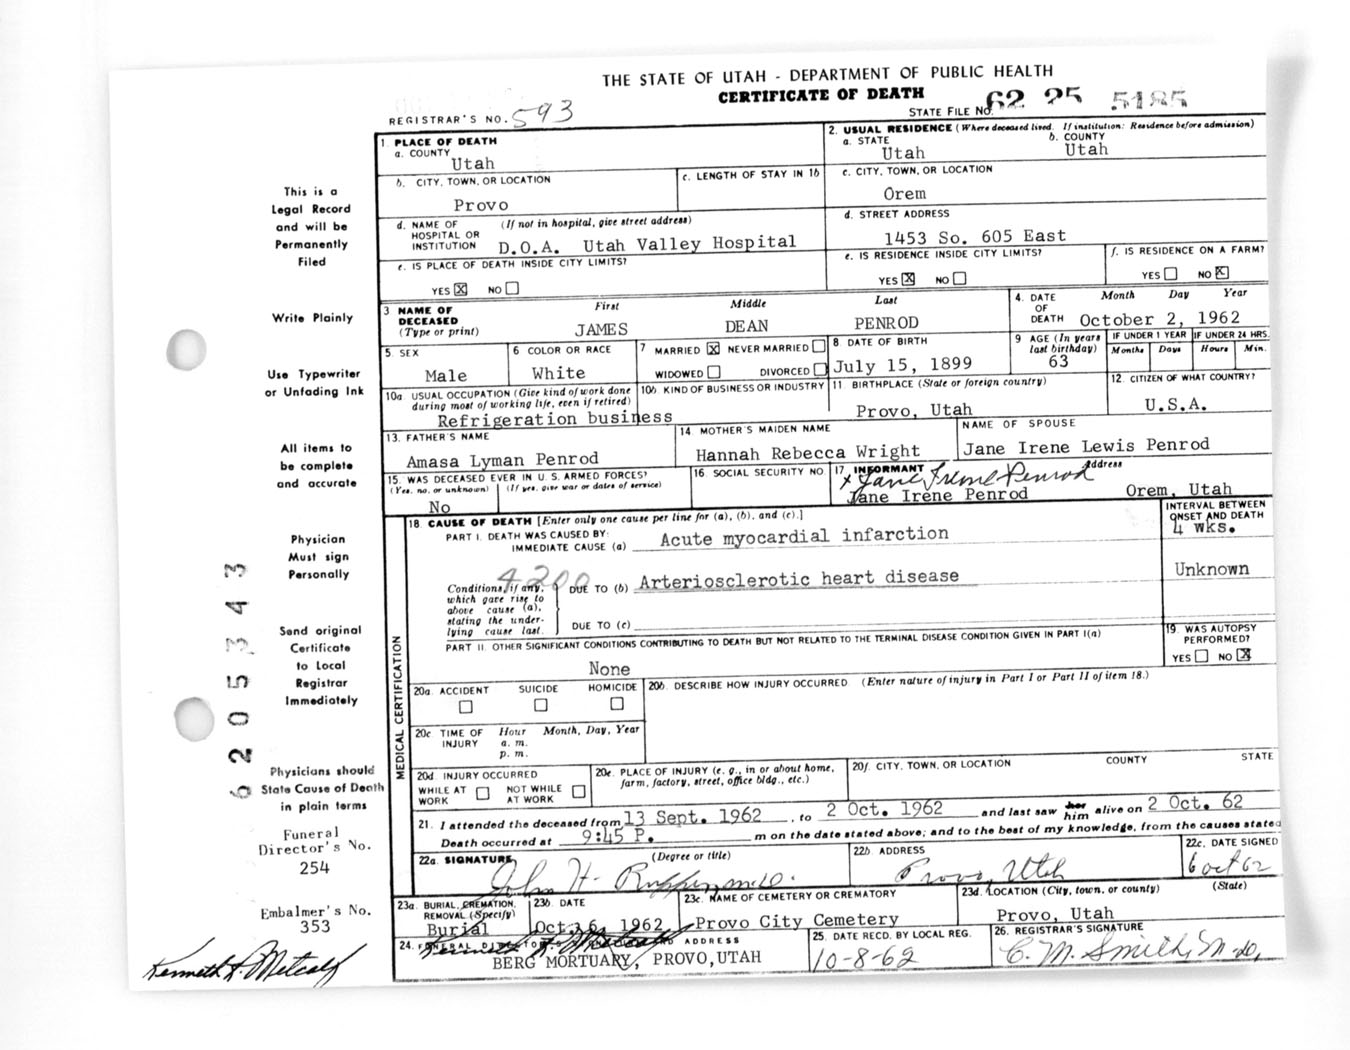 THE STATE OF UTAH - DEPARTMENT OF PUBLIC HEALTH
CERTIFICATE OF DEATH
REGISTRAR'S NO. 593
STATE FILE NO. 62 25 5185
This is a
Legal Record
and will be
Permanently
Filed
Write Plainly
Use Typewriter
or Unfading Ink
All items to
be complete
and accurate
Physician
Must sign
Personally
Send original
Certificate
to Local
Registrar
Immediately
Physicians should
State Cause of Death
in plain terms
Funeral
Director's No.
254
Embalmer's No.
353
Kenneth A. Metcalf
6205343
1. PLACE OF DEATH
a. COUNTY
Utah
2. USUAL RESIDENCE (Where deceased lived. If institution: Residence before admission)
a. STATE b. COUNTY
Utah Utah
b. CITY, TOWN, OR LOCATION
Provo
c. LENGTH OF STAY IN 1b
c. CITY, TOWN, OR LOCATION
Orem
d. NAME OF HOSPITAL OR INSTITUTION (If not in hospital, give street address)
D.O.A. Utah Valley Hospital
d. STREET ADDRESS
1453 So. 605 East
e. IS PLACE OF DEATH INSIDE CITY LIMITS?
YES X NO
e. IS RESIDENCE INSIDE CITY LIMITS?
YES X NO
f. IS RESIDENCE ON A FARM?
YES NO X
3 NAME OF DECEASED (Type or print)
First Middle Last
JAMES DEAN PENROD
4. DATE OF DEATH Month Day Year
October 2, 1962
5. SEX
Male
6 COLOR OR RACE
White
7 MARRIED X NEVER MARRIED
WIDOWED DIVORCED
8. DATE OF BIRTH
July 15, 1899
9 AGE (In years last birthday)
63
IF UNDER 1 YEAR
Months Days
IF UNDER 24 HRS.
Hours Min.
10a. USUAL OCCUPATION (Give kind of work done during most of working life, even if retired)
Refrigeration business
10b. KIND OF BUSINESS OR INDUSTRY
11. BIRTHPLACE (State or foreign country)
Provo, Utah
12. CITIZEN OF WHAT COUNTRY?
U.S.A.
13. FATHER'S NAME
Amasa Lyman Penrod
14 MOTHER'S MAIDEN NAME
Hannah Rebecca Wright
NAME OF SPOUSE
Jane Irene Lewis Penrod
15. WAS DECEASED EVER IN U. S. ARMED FORCES?
(Yes, no, or unknown) (If yes, give war or dates of service)
No
16. SOCIAL SECURITY NO.
17. INFORMANT Address
x Jane Irene Penrod
Jane Irene Penrod Orem, Utah
MEDICAL CERTIFICATION
18. CAUSE OF DEATH [Enter only one cause per line for (a), (b), and (c).]
INTERVAL BETWEEN ONSET AND DEATH
PART I. DEATH WAS CAUSED BY:
IMMEDIATE CAUSE (a) Acute myocardial infarction
4 wks.
4200
Conditions, if any, which gave rise to above cause (a), stating the underlying cause last.
DUE TO (b) Arteriosclerotic heart disease
Unknown
DUE TO (c)
PART II. OTHER SIGNIFICANT CONDITIONS CONTRIBUTING TO DEATH BUT NOT RELATED TO THE TERMINAL DISEASE CONDITION GIVEN IN PART I(a)
None
19. WAS AUTOPSY PERFORMED?
YES NO X
20a. ACCIDENT SUICIDE HOMICIDE
20b. DESCRIBE HOW INJURY OCCURRED. (Enter nature of injury in Part I or Part II of item 18.)
20c TIME OF INJURY Hour Month, Day, Year
a. m.
p. m.
20d. INJURY OCCURRED
WHILE AT WORK NOT WHILE AT WORK
20e. PLACE OF INJURY (e. g., in or about home, farm, factory, street, office bldg., etc.)
20f. CITY, TOWN, OR LOCATION COUNTY STATE
21. I attended the deceased from 13 Sept. 1962, to 2 Oct. 1962 and last saw her him alive on 2 Oct. 62
Death occurred at 9:45 P. m on the date stated above; and to the best of my knowledge, from the causes stated
22a. SIGNATURE (Degree or title)
John H. Rupper, m.d.
22b. ADDRESS
Provo, Utah
22c. DATE SIGNED
6 oct 62
23a. BURIAL, CREMATION, REMOVAL (Specify)
Burial
23b. DATE
Oct. 6 1962
23c. NAME OF CEMETERY OR CREMATORY
Provo City Cemetery
23d. LOCATION (City, town, or county) (State)
Provo, Utah
24. FUNERAL DIRECTOR'S AND ADDRESS
Kenneth A. Metcalf
BERG MORTUARY, PROVO, UTAH
25. DATE RECD. BY LOCAL REG.
10-8-62
26. REGISTRAR'S SIGNATURE
C. M. Smith, M.D.